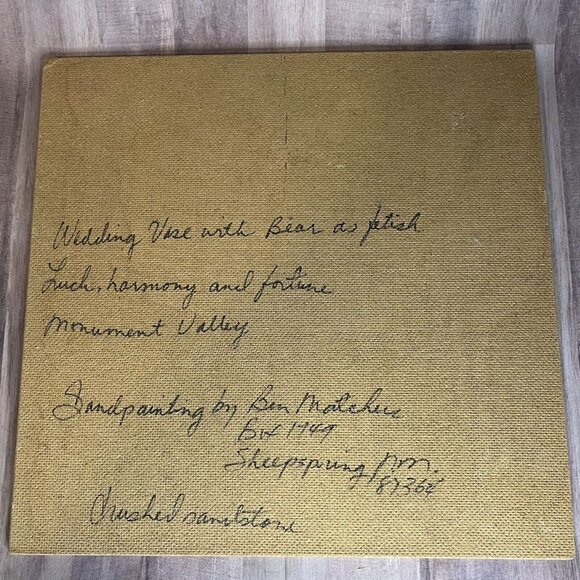 Wedding Vase with Bear as fetish
Luck, harmony and fortune
Monument Valley
Sandpainting by Ben
Bx 1749
Sheepspring, nm.
87364
Crushed sandstone